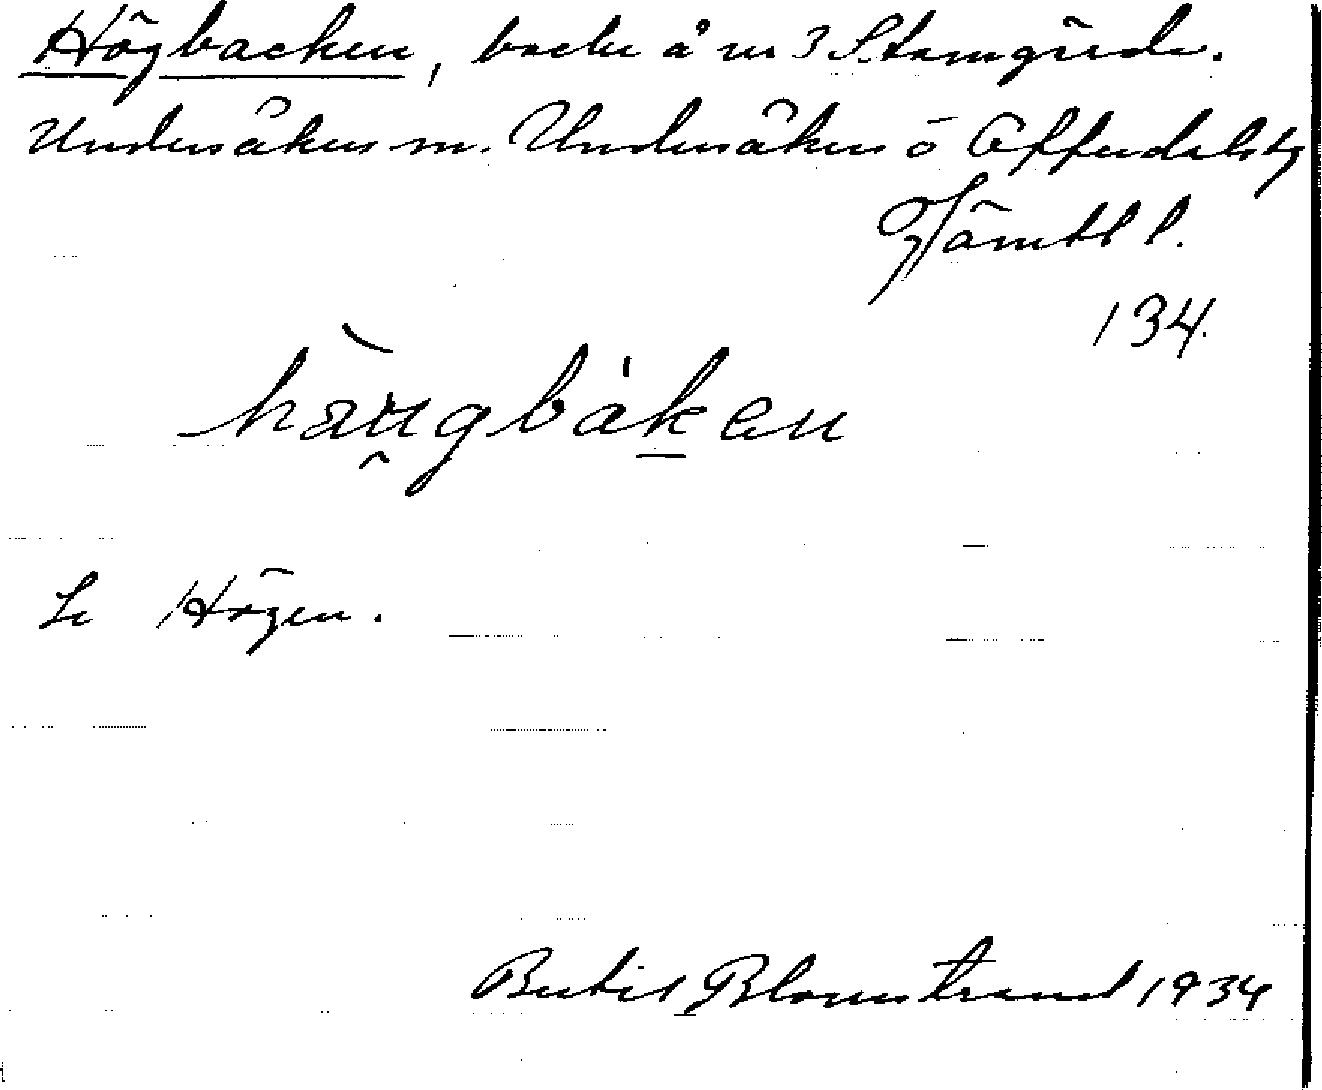 Högbacken, backe å nr 3 Stamgärde.
Undersåkers sn. Undersåkers o Offerdals tg
Jämtl l.
134.
hàu̯gbák̲en
Se Högen.
Bertil Blomstrand 1934